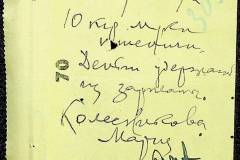 10 кгр муки
пшеничн.
Деньги удержать
из зарплаты.
Колесникова
Мария
70